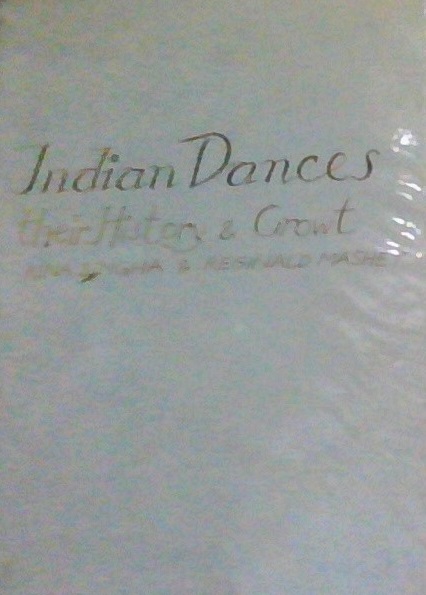 Indian Dances
their History & Growt
& REGINALD MASSE